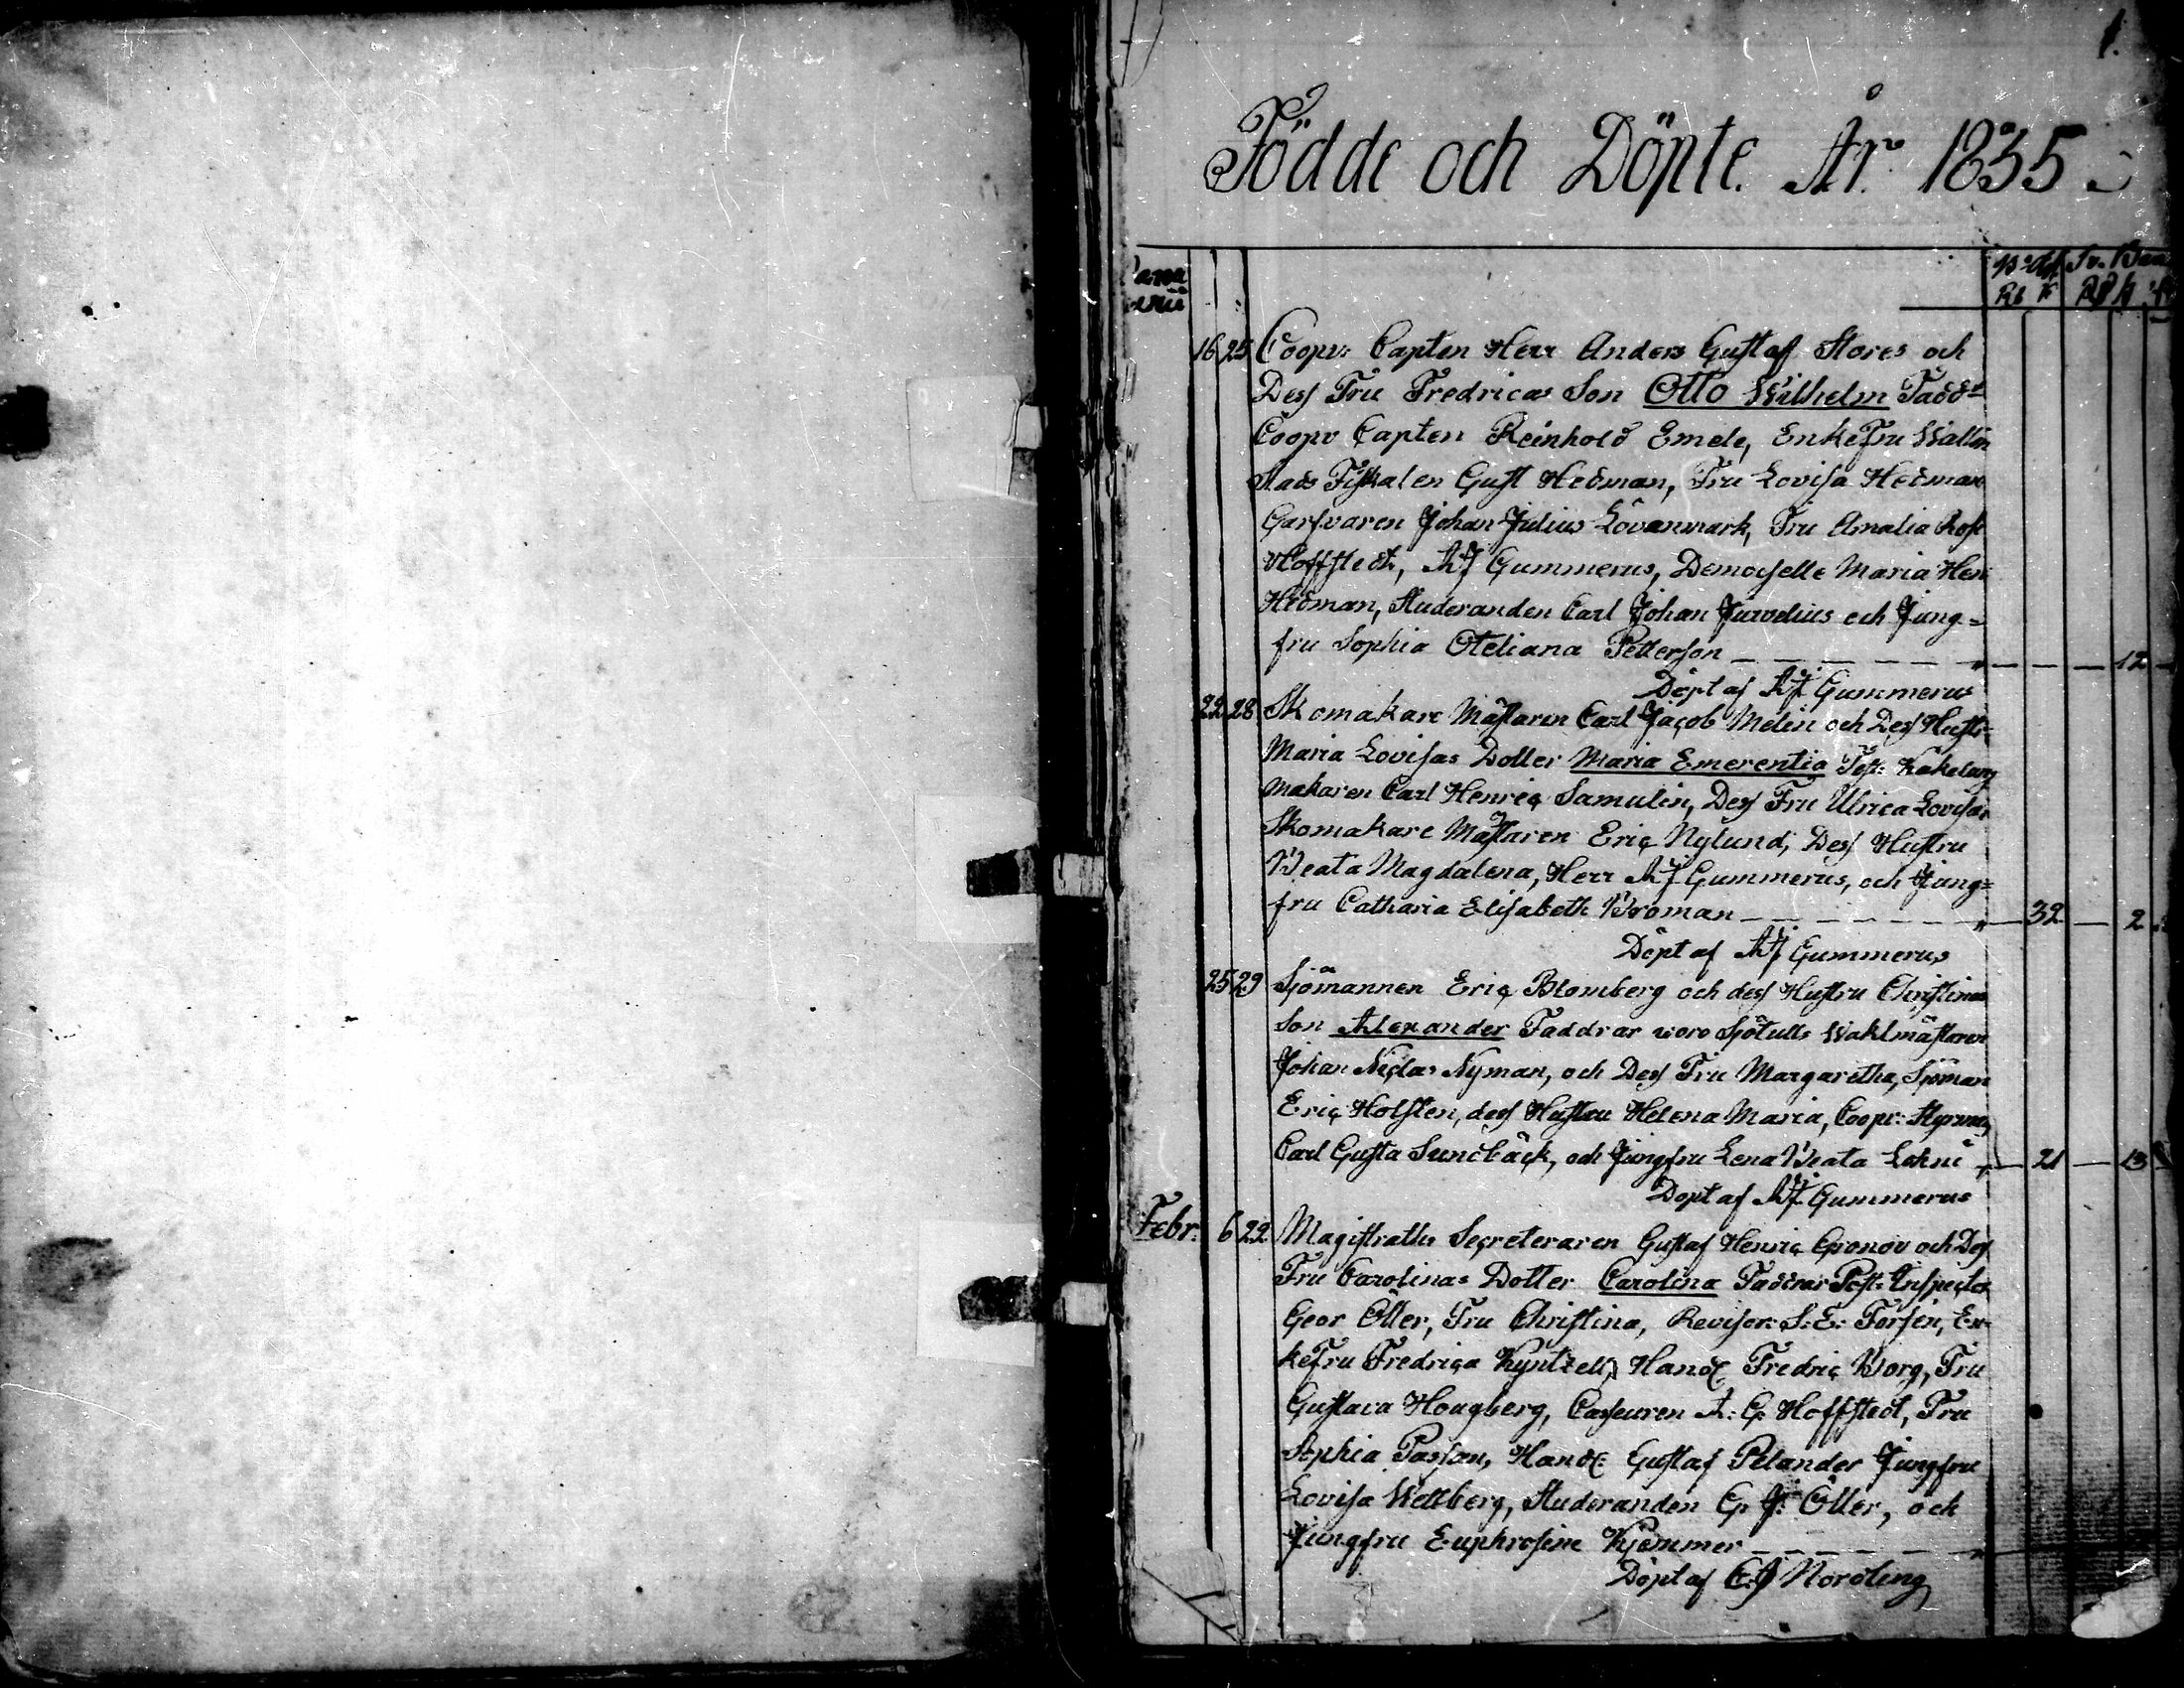 1.
Födde och Döpte År 1835
Janu
arii
B:o Ass Sv. Banc
Rb K Rd s
16 25 Coopv: Capten Herr Anders Gustaf Stores och
Dess Fru Fredricas Son Otto Wilhelm Fadd=
Coopv Capten Reinhold Emele, EnkeFru Wallin
Stads Fiskalen Gust Hedman, Fru Lovisa Hedman
Garfvaren Johan Julius Lövanmark, Fru Amalia Ros
Hoffstedt, AJ Gummerus, Demoiselle Maria Hen
Hedman, Studeranden Carl Johan Jurvelius och Jung=
fru Sophia Oteliana Petterson 12
Döpt af AJ Gummerus
22 28 Skomakare Mästaren Carl Jacob Melin och Dess Hustr:
Maria Lovisas Dotter Maria Emerentia Test: Kakelung
makaren Carl Henric Samulin, Dess Fru Ulrica Lovisa,
Skomakare Mästaren Eric Nylund, Dess Hustru
Beata Magdalena, Herr AJ Gummerus, och Jung=
fru Catharia Elisabeth Broman 32 2
Döpt af AJ Gummerus
25 29 Sjömannen Eric Blomberg och dess Hustru Christinas
Son Alexander Faddrar woro Sjötulls Waktmästaren
Johan Niclas Nyman, och Dess Fru Margaretha, Sjöman
Eric Holsten, dess Hustru Helena Maria, Coopv: Styrman
Carl Gusta Sundbäck, och Jungfru Lena Beata 21 13
Döpt af AJ Gummerus
Febr: 6 22 Magistraths Secreteraren Gustaf Henric Gronov och Dess
Fru Carolinas Dotter Carolina Faddrar Post: Inspector
Geor Öller, Fru Christina, Revisor: S: E: Forsén, En=
keFru Fredrica Kyntzell, Handl: Fredric Borg, Fru
Gustava Hougberg, Casseuren A: G: Hoffstedt, Fru
Sophia Handl: Gustaf Pelander Jungfru
Lovisa Wettberg, Studeranden G: J: Öller, och
Jungfru Euphrosine Kjemmer
Döpt af Nordling